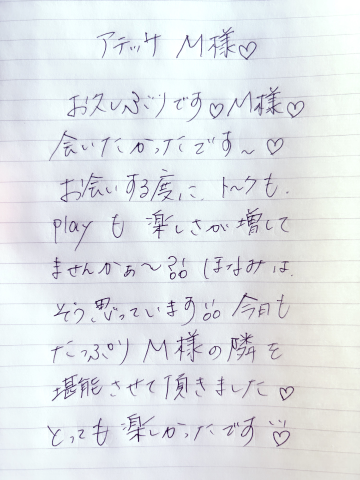 アテッサ M様♡
お久しぶりです♡M様♡
会いたかったです~♡
お会いする度に、トークも、
playも 楽しさが増して
ませんかぁ〜?? ほなみは、
そう思っています!! 今日も
たっぷり M様の隣を
堪能させて頂きました♡
とっても楽しかったです♡